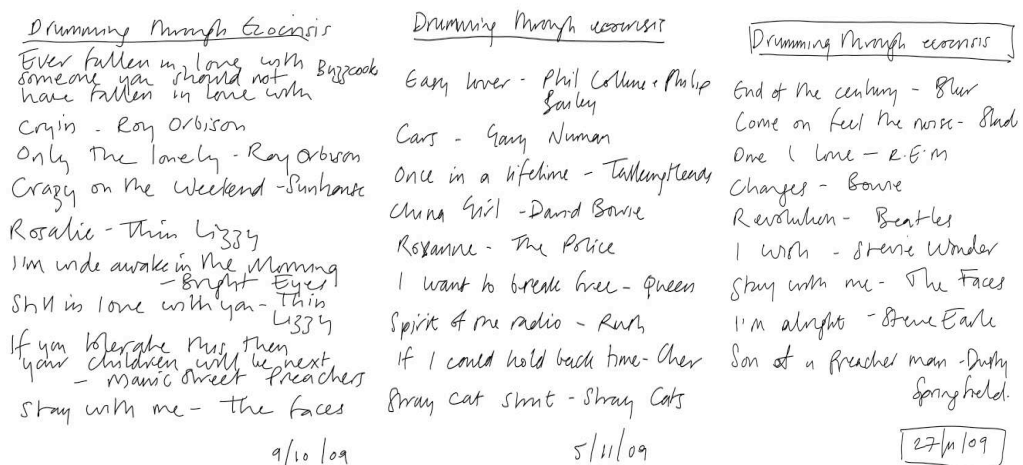 Drumming through Ecocrisis
Ever fallen in love with
someone you should not Buzzcocks
have fallen in love with
Cryin - Roy Orbison
Only the lonely - Roy Orbison
Crazy on the weekend - Sunhouse
Rosalie - Thin Lizzy
I'm wide awake in the Morning
- Bright Eyes
Still in love with you - Thin
Lizzy
If you tolerate this then
your children will be next
- Manic Street Preachers
Stay with me - The Faces
9/10/09
Drumming through ecocrisis
Easy lover - Phil Collins + Philip
Bailey
Cars - Gary Numan
Once in a lifetime - Talking Heads
China Girl - David Bowie
Roxanne - The Police
I want to break free - Queen
Spirit of the radio - Rush
If I could hold back time - Cher
Stray cat strut - Stray Cats
5/11/09
Drumming through ecocrisis
End of the century - Blur
Come on feel the noise - Slad
One I love - R.E.M
Changes - Bowie
Revolution - Beatles
I wish - Stevie Wonder
Stay with me - The Faces
I'm alright - Steve Earle
Son of a preacher man - Dusty
Springfield.
27/11/09